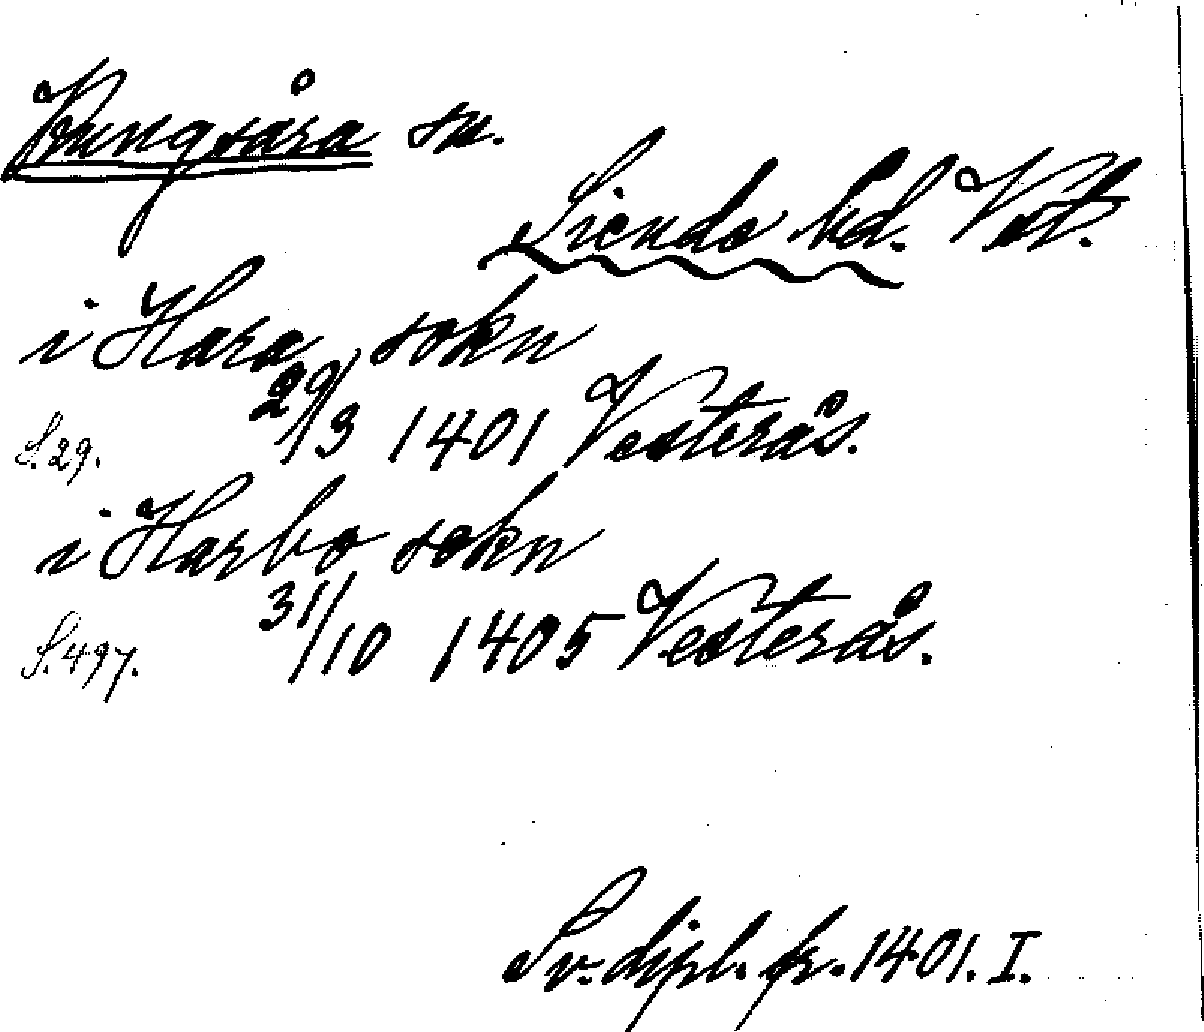 Kungsåra sn.
Siende hd. Vstm.
i Hara sokn
S. 29. 29/3 1401 Vesterås.
i Harbo sokn
S. 497. 31/10 1405 Vesterås.
Sv. dipl. fr. 1401. I.